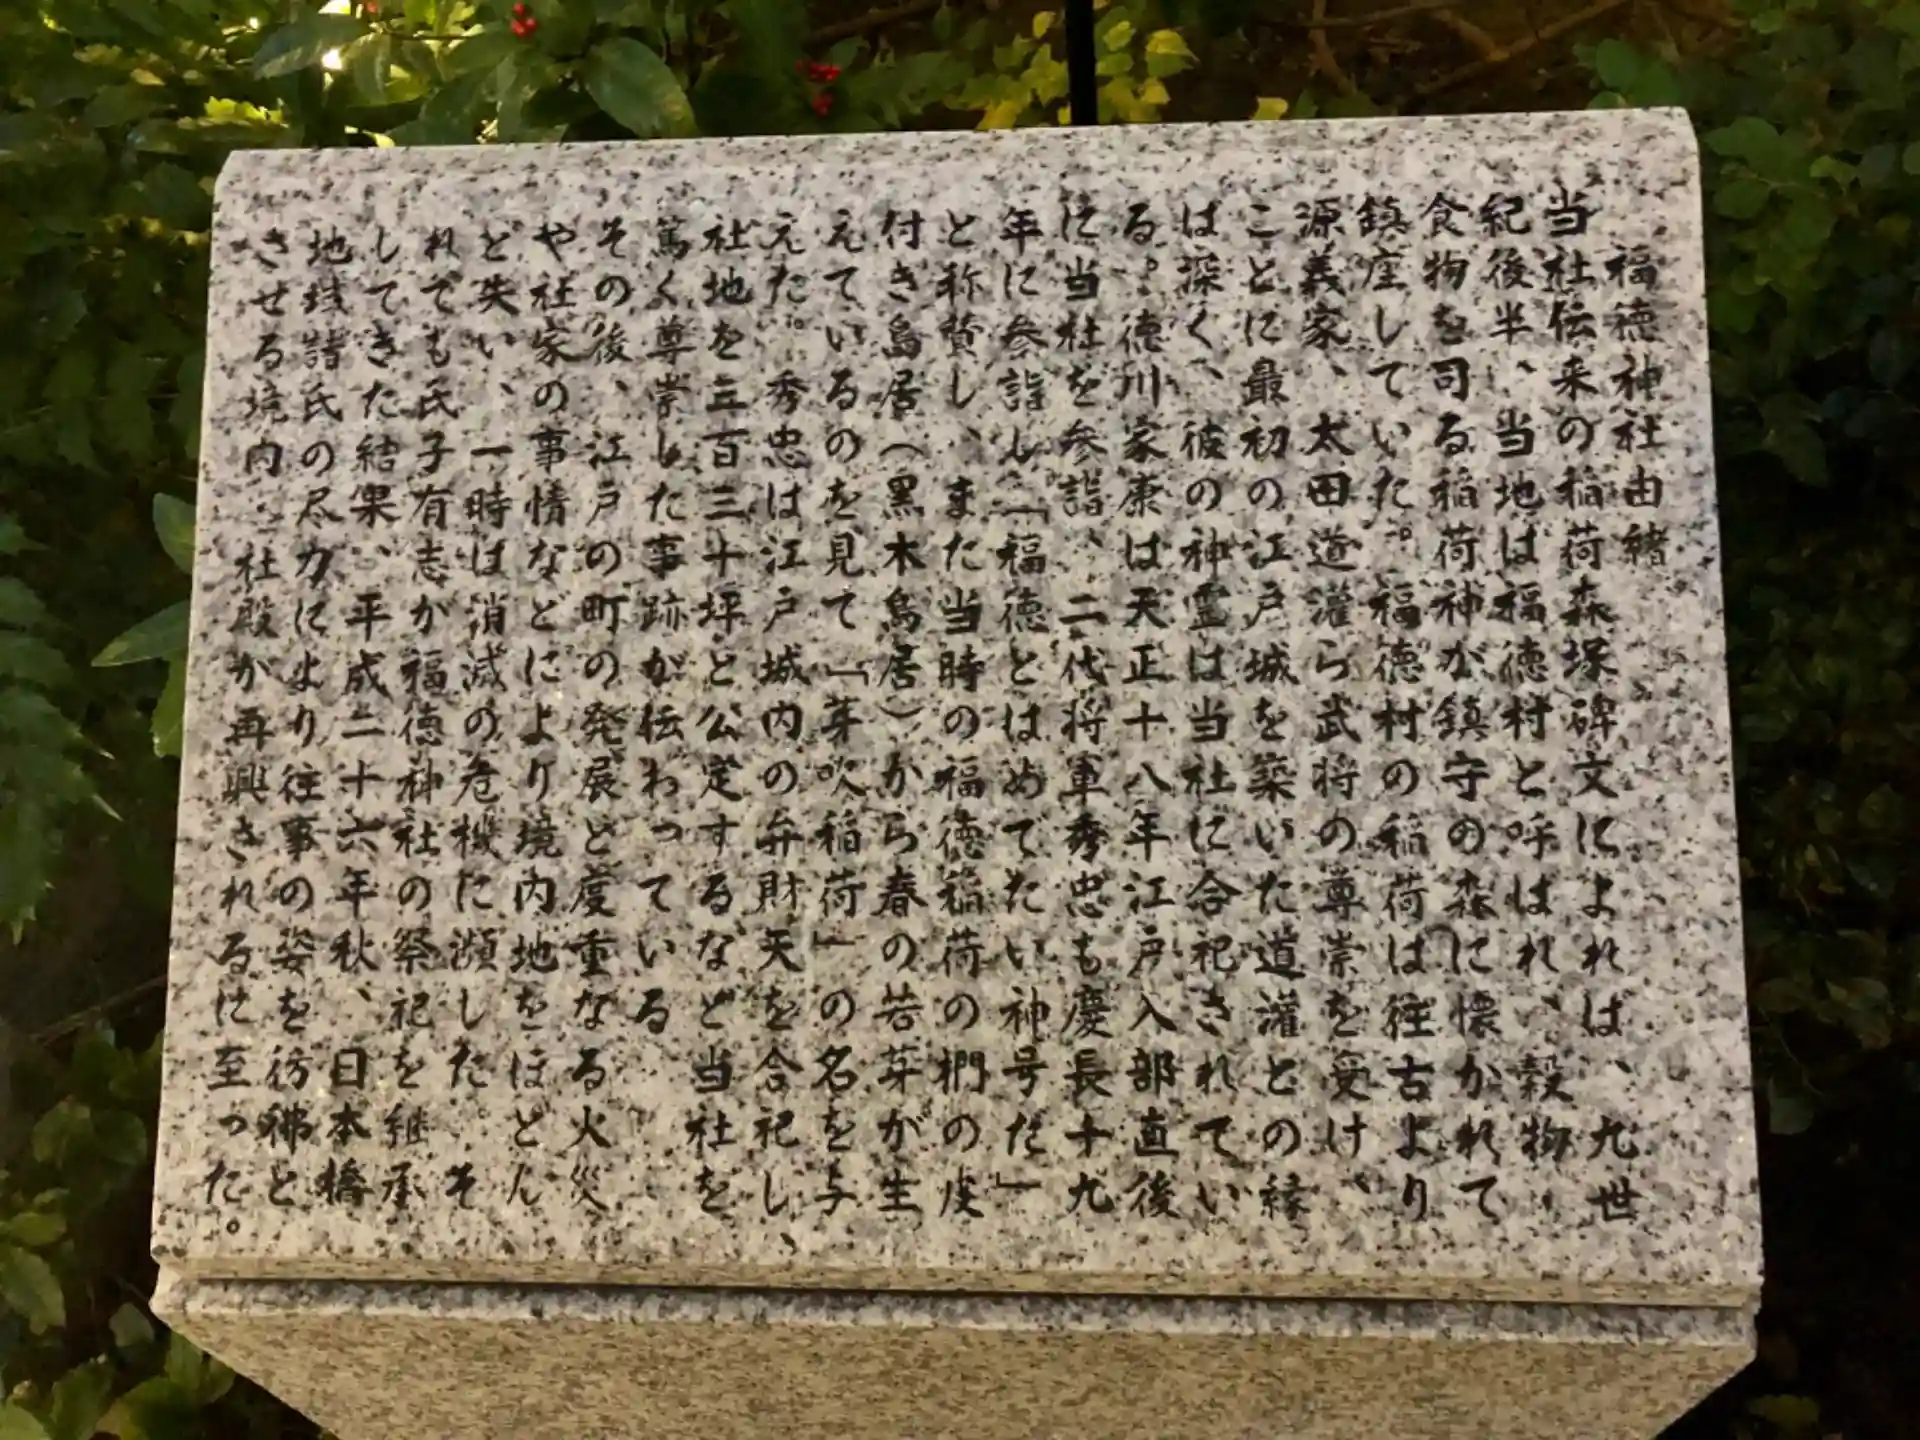 福徳神社由緒
当社伝来の稲荷森塚碑文によれは、九世
紀後半、当地は福徳村と呼はれ、穀物、
食物を司る稲荷神が鎮守の森に懐かれて
鎮座していた。福徳村の稲荷は往古より
源義家、太田道灌ら武将の尊崇を受け、
ことに最初の江戸城を築いた道灌との縁
は深く、彼の神霊は当社に合祀されてい
る。徳川家康は天正十八年江戸入部直後
に当社を参詣、二代将軍秀忠も慶長十九
年に参詣し「福徳とはめてたい神号だ」
と称賛し、また当時の福徳稲荷の椚の皮
付き鳥居（黒木鳥居）から春の若芽が生
えているのを見て「芽吹稲荷」の名を与
えた。秀忠は江戸城内の弁財天を合祀し、
社地を三百三十坪と公定するなど当社を
篤く尊崇した事跡が伝わっている
その後、江戸の町の発展と度重なる火災
や社家の事情などにより境内地をほどん
ど失い、一時は消滅の危機に瀕した。そ
れでも氏子有志か福徳神社の祭祀を継承
してきた結果、平成二十六年秋、日本橋
地域諸氏の尽力により往事の姿を彷彿と
させる境内、社殿が再興されるに至った。